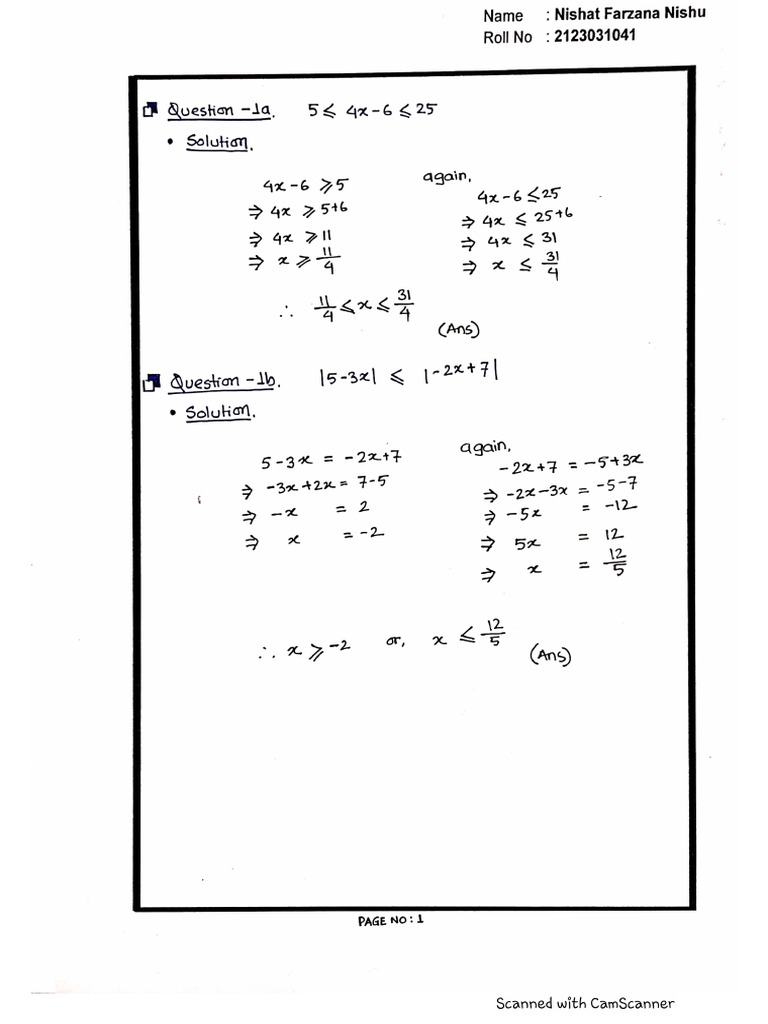 Name : Nishat Farzana Nishu
Roll No : 2123031041
Question -1a. 5 ⩽ 4x-6 ⩽ 25
• Solution.
4x-6 ⩾ 5
⇒ 4x ⩾ 5+6
⇒ 4x ⩾ 11
⇒ x ⩾ 11/4
again,
4x-6 ⩽ 25
⇒ 4x ⩽ 25+6
⇒ 4x ⩽ 31
⇒ x ⩽ 31/4
∴ 11/4 ⩽ x ⩽ 31/4
(Ans)
Question -1b. |5-3x| ⩽ |-2x+7|
• Solution.
5-3x = -2x+7
⇒ -3x+2x = 7-5
⇒ -x = 2
⇒ x = -2
again,
-2x+7 = -5+3x
⇒ -2x-3x = -5-7
⇒ -5x = -12
⇒ 5x = 12
⇒ x = 12/5
∴ x ⩾ -2 or, x ⩽ 12/5 (Ans)
PAGE NO: 1
Scanned with CamScanner